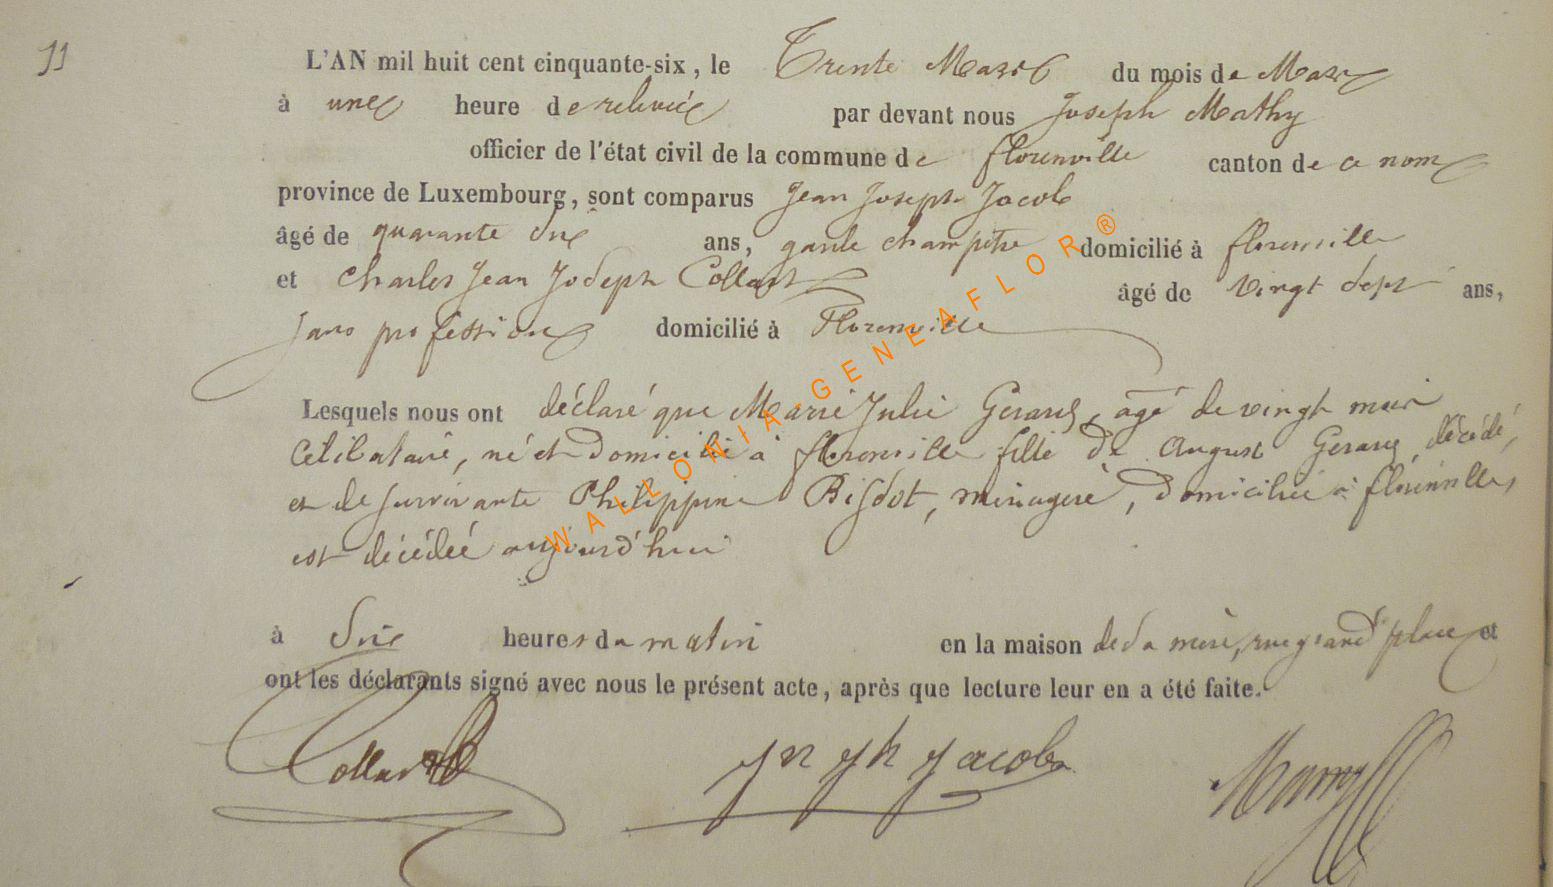 11
L'AN mil huit cent cinquante-six, le Trente Mars du mois de Mars
à une heure de relevée par devant nous Joseph Mathy
officier de l'état civil de la commune de florenville canton de ce nom
province de Luxembourg, sont comparus Jean Joseph Jacob
âgé de quarante six ans, garde champêtre domicilié à florenville
et Charles Jean Joseph Collart âgé de vingt sept ans,
sans profession domicilié à Florenville
Lesquels nous ont déclaré que Marie Julie Gerard, agé de vingt
Celibataire, né et domicilié à florenville fille de August Gerard décédé,
et de survivante Philippine Bisdot, menagere, domiciliée à florenville,
est décédée aujourd'hui
à Six heures du matin en la maison de sa mère, rue grand place et
ont les déclarants signé avec nous le présent acte, après que lecture leur en a été faite.
Collart Jn Jph Jacob Mathy
WALLONIA-GENEAFLOR®